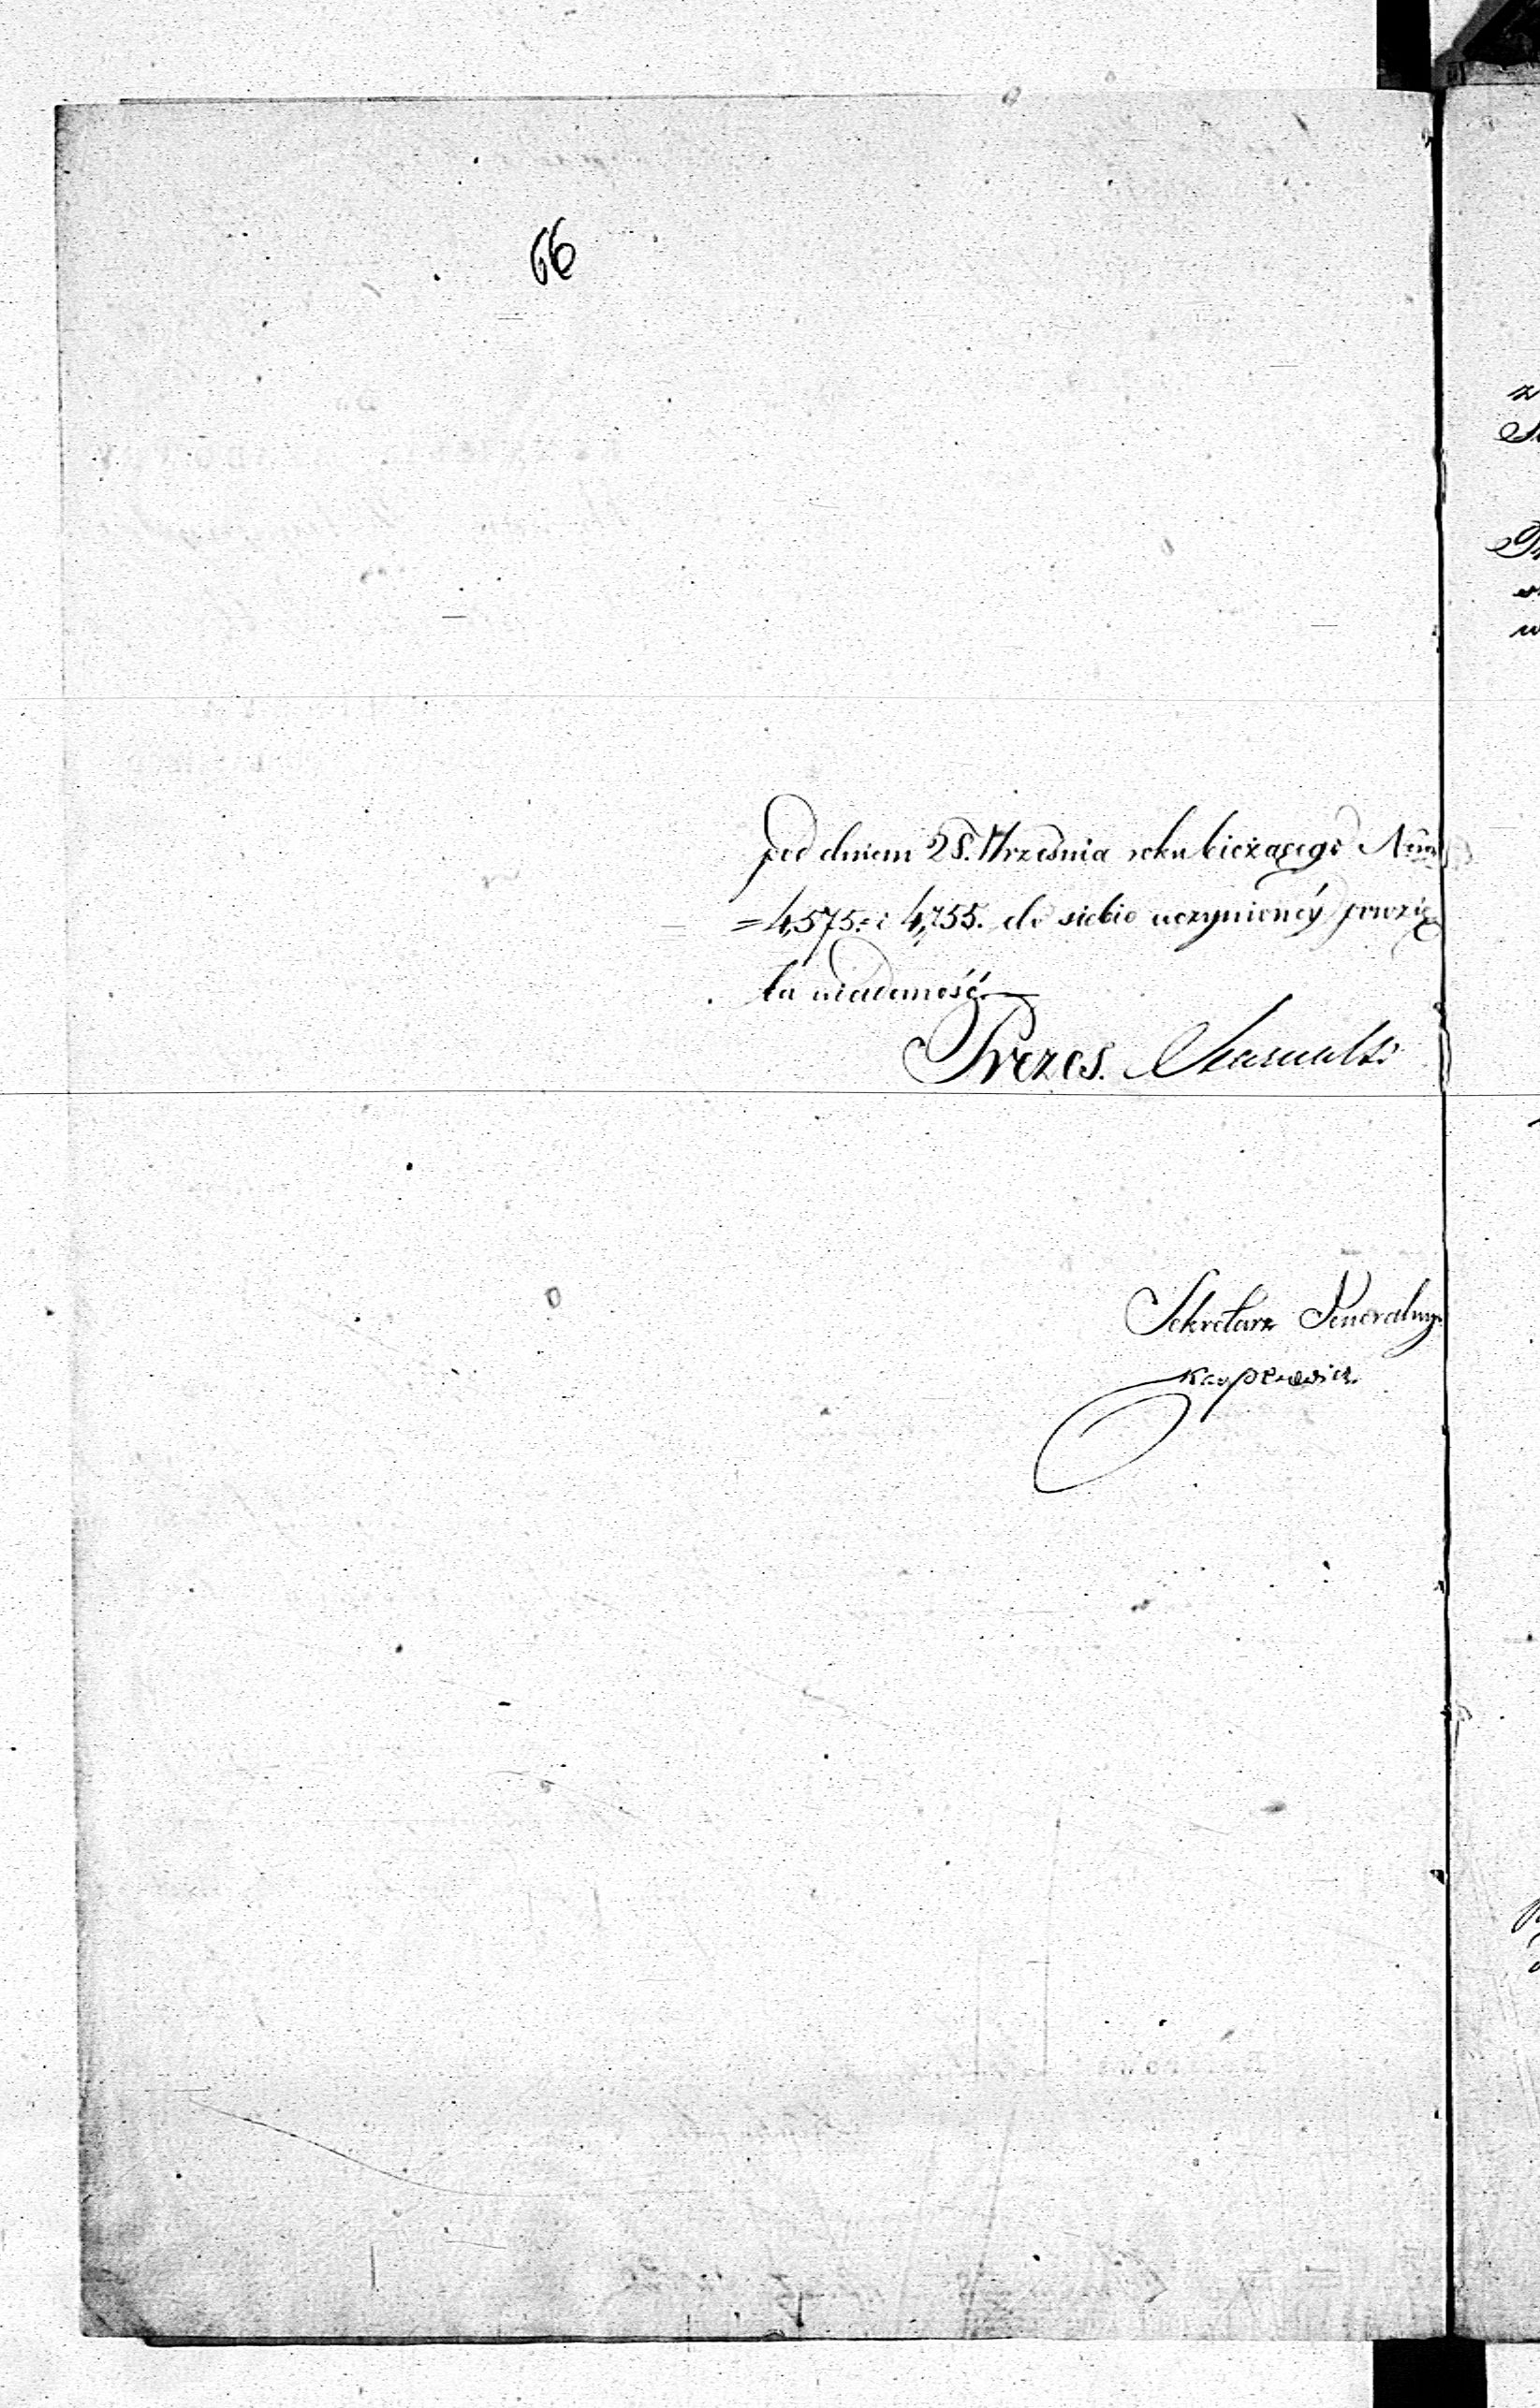 66
pod dniem 28. Września roku bieżącego Num
=4,575.= i 4,755. do siebie uczynioney powzię
ła wiadomość.
Prezes.
Sekretarz Generalny